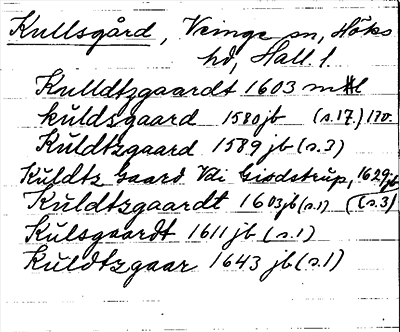 Kullsgård, Veinge sn, Höks
hd, Hall. l.
Kulldtzgaardt 1603 mtl
kuldsgaard 1580 jb (s.17.) 170.
Kuldtzgaard 1589 jb (s.3)
Kuldtz Gaard Vdi Giødstrup, 1629 jb
(s.3)
Kuldtzgaardt 1603 jb (s.1)
Kulsgaardt 1611 jb (s.1)
Kuldtzgaar 1643 jb (s.1)